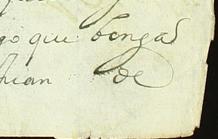 go que benga
Juan de